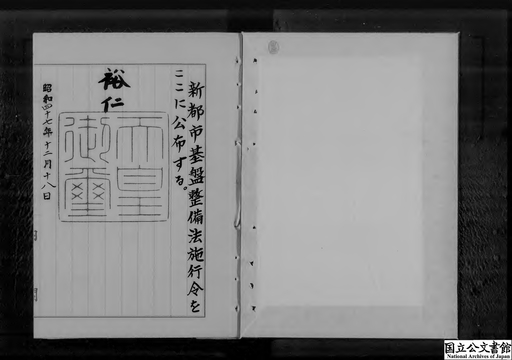 新都市基盤整備法施行令を
ここに公布する。
裕仁
天皇
御璽
昭和四十七年十二月十八日
国立公文書館
National Archives of Japan